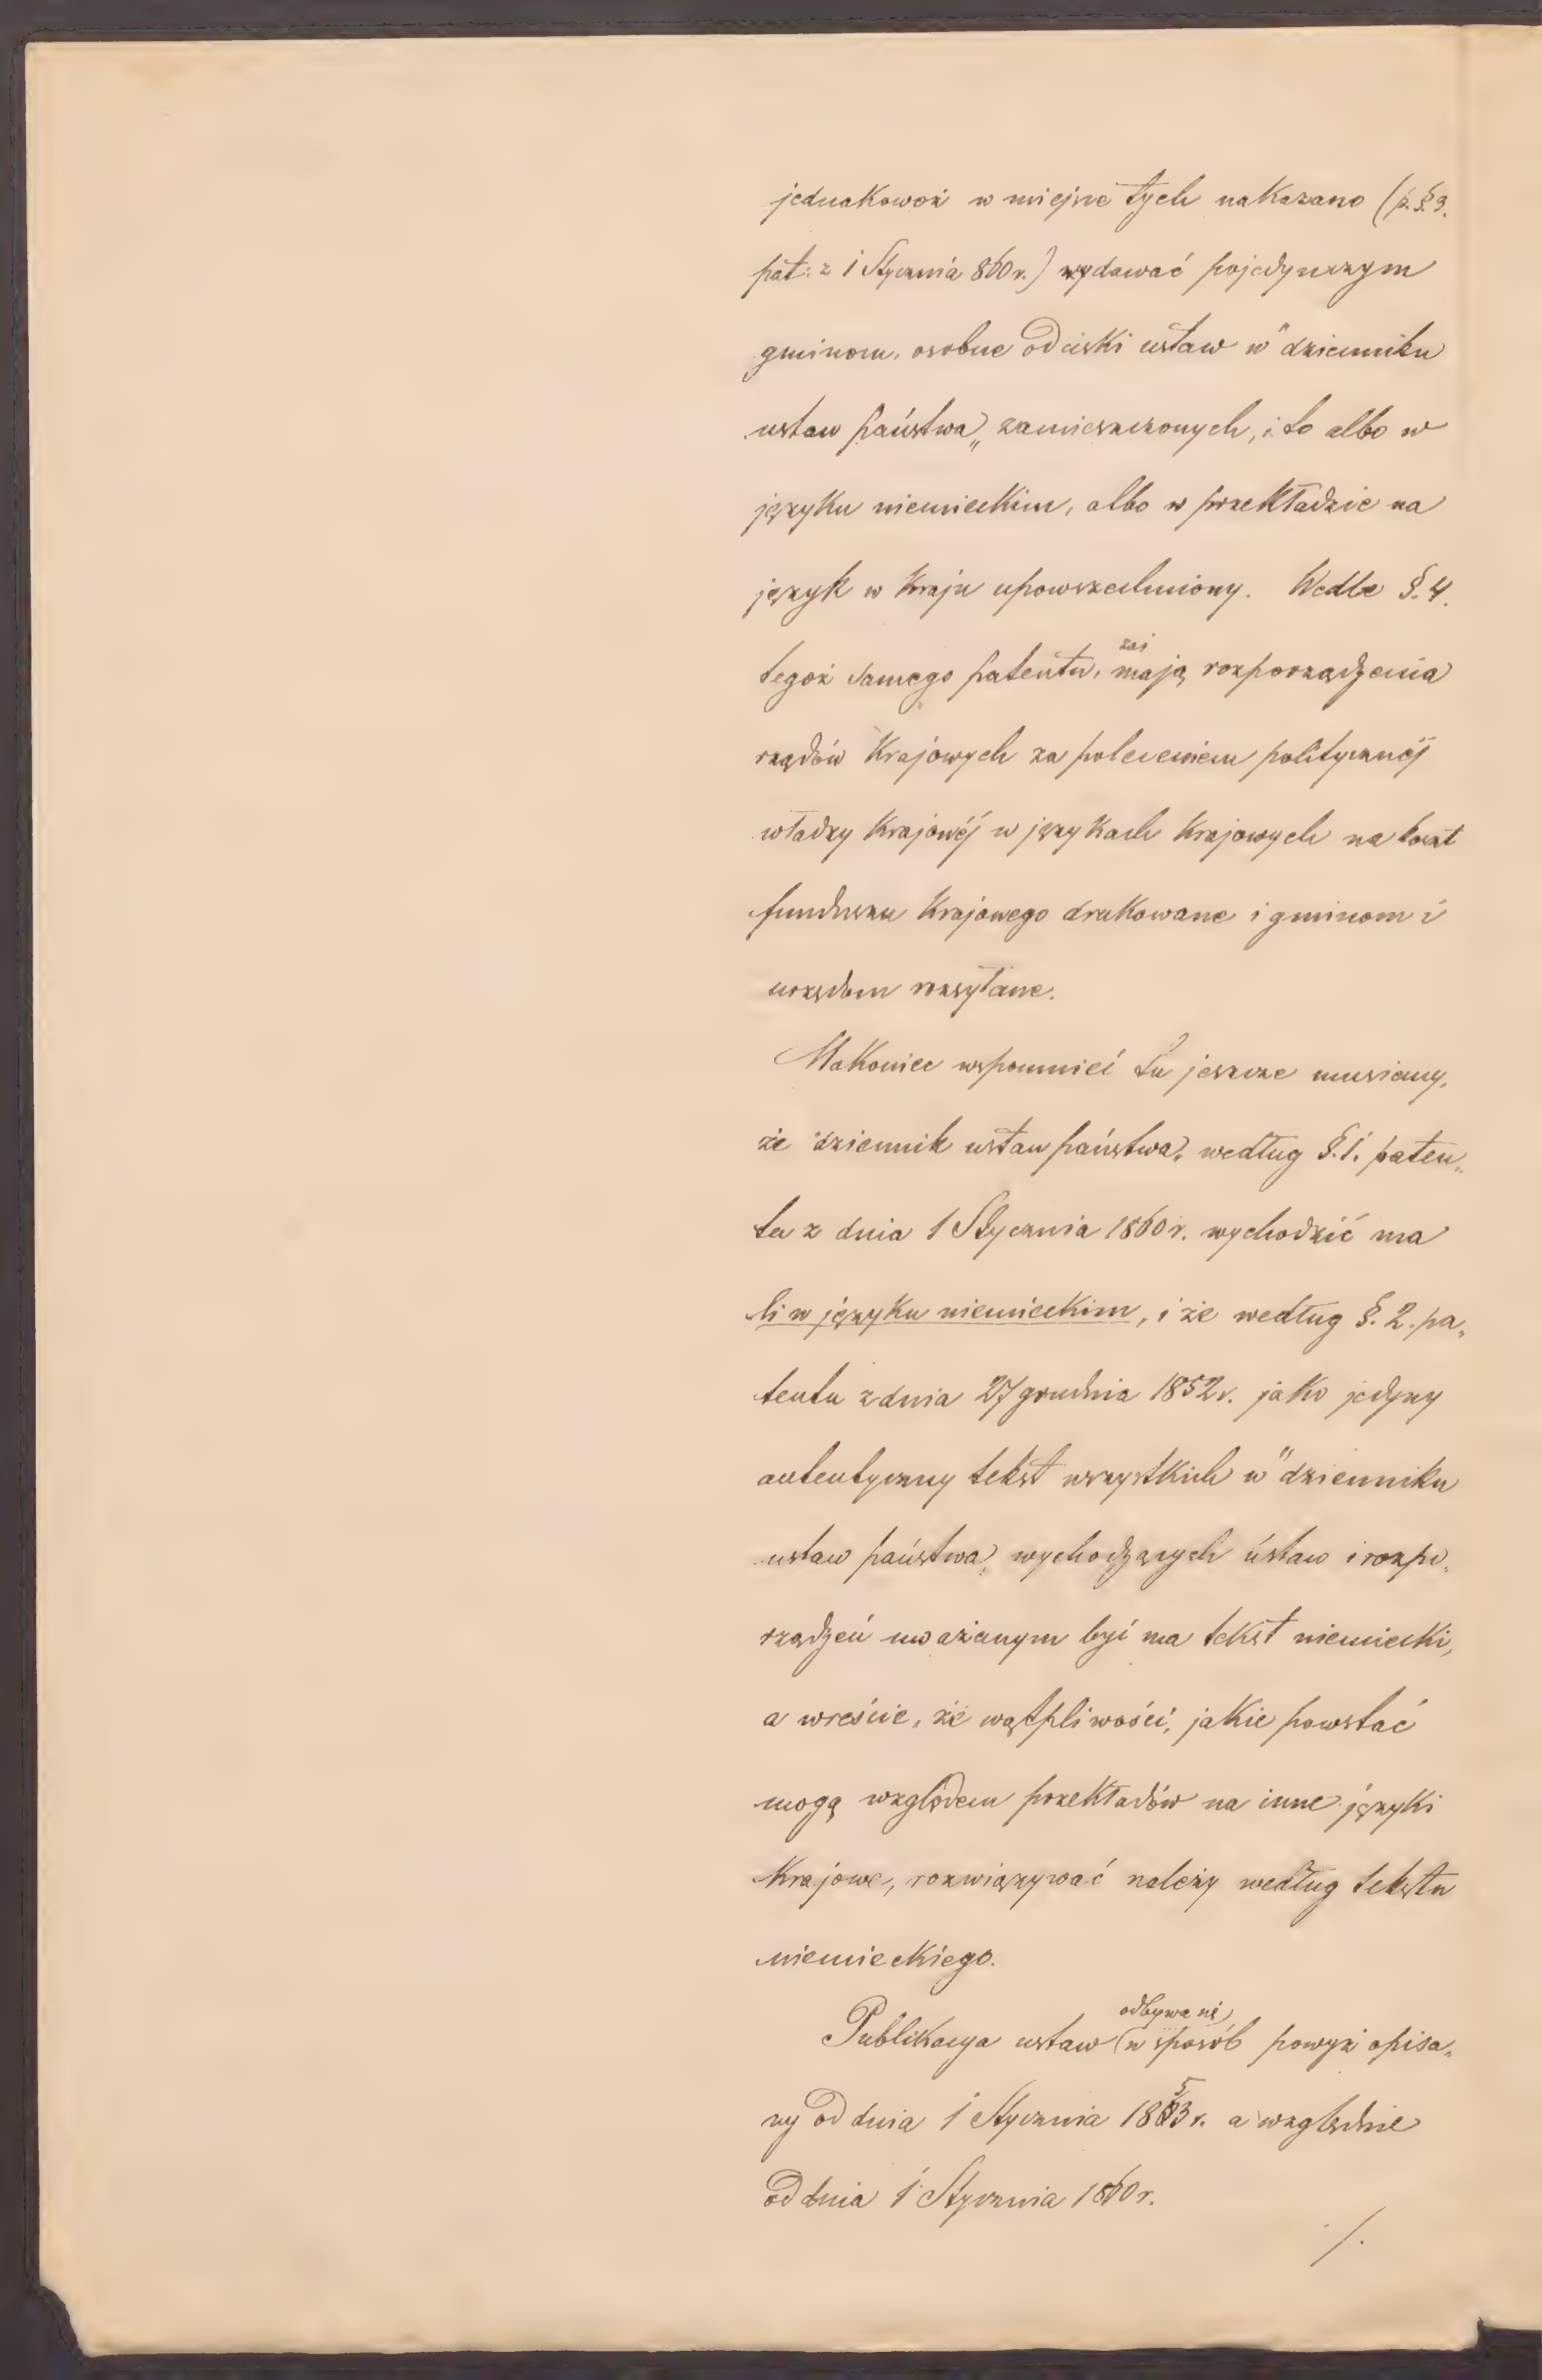 jednakowoż w miejsce tych nakazano (p. §. 3.
pat: z 1 Stycznia 860 r.) wydawać pojedynczym
gminom, osobne odciski ustaw w "dzienniku
ustaw państwa„ zamieszczonych, i to albo w
języku niemieckim, albo w przekładzie na
język w kraju upowszechniony. Wedle §. 4.
tegoż samego patentu, zaś mają rozporządzenia
rządów krajowych za poleceniem politycznéj
władzy krajowéj w językach krajowych na koszt
funduszu krajowego drukowane i gminom i
urzędom rozsyłane.
Nakoniec wspomnieć tu jeszcze musiemy,
że "dziennik ustaw państwa„ według §. 1. paten„
tu z dnia 1 Stycznia 1860 r. wychodzić ma
li w języku niemieckim, i że według §. 2. pa„
tentu z dnia 27 grudnia 1852 r. jako jedyny
autentyczny tekst wszystkich w "dzienniku
ustaw państwa„ wychodzących ustaw i rozpo„
rządzeń uważanym być ma tekst niemiecki,
a wreście, że wątpliwości, jakie powstać
mogą względem przekładów na inne języki
krajowe, rozwiązywać należy według tekstu
niemieckiego.
Publikacya ustaw odbywa się w sposób powyż opisa„
ny od dnia 1 Stycznia 1853 r. a względnie
od dnia 1 Stycznia 1860 r.
./.